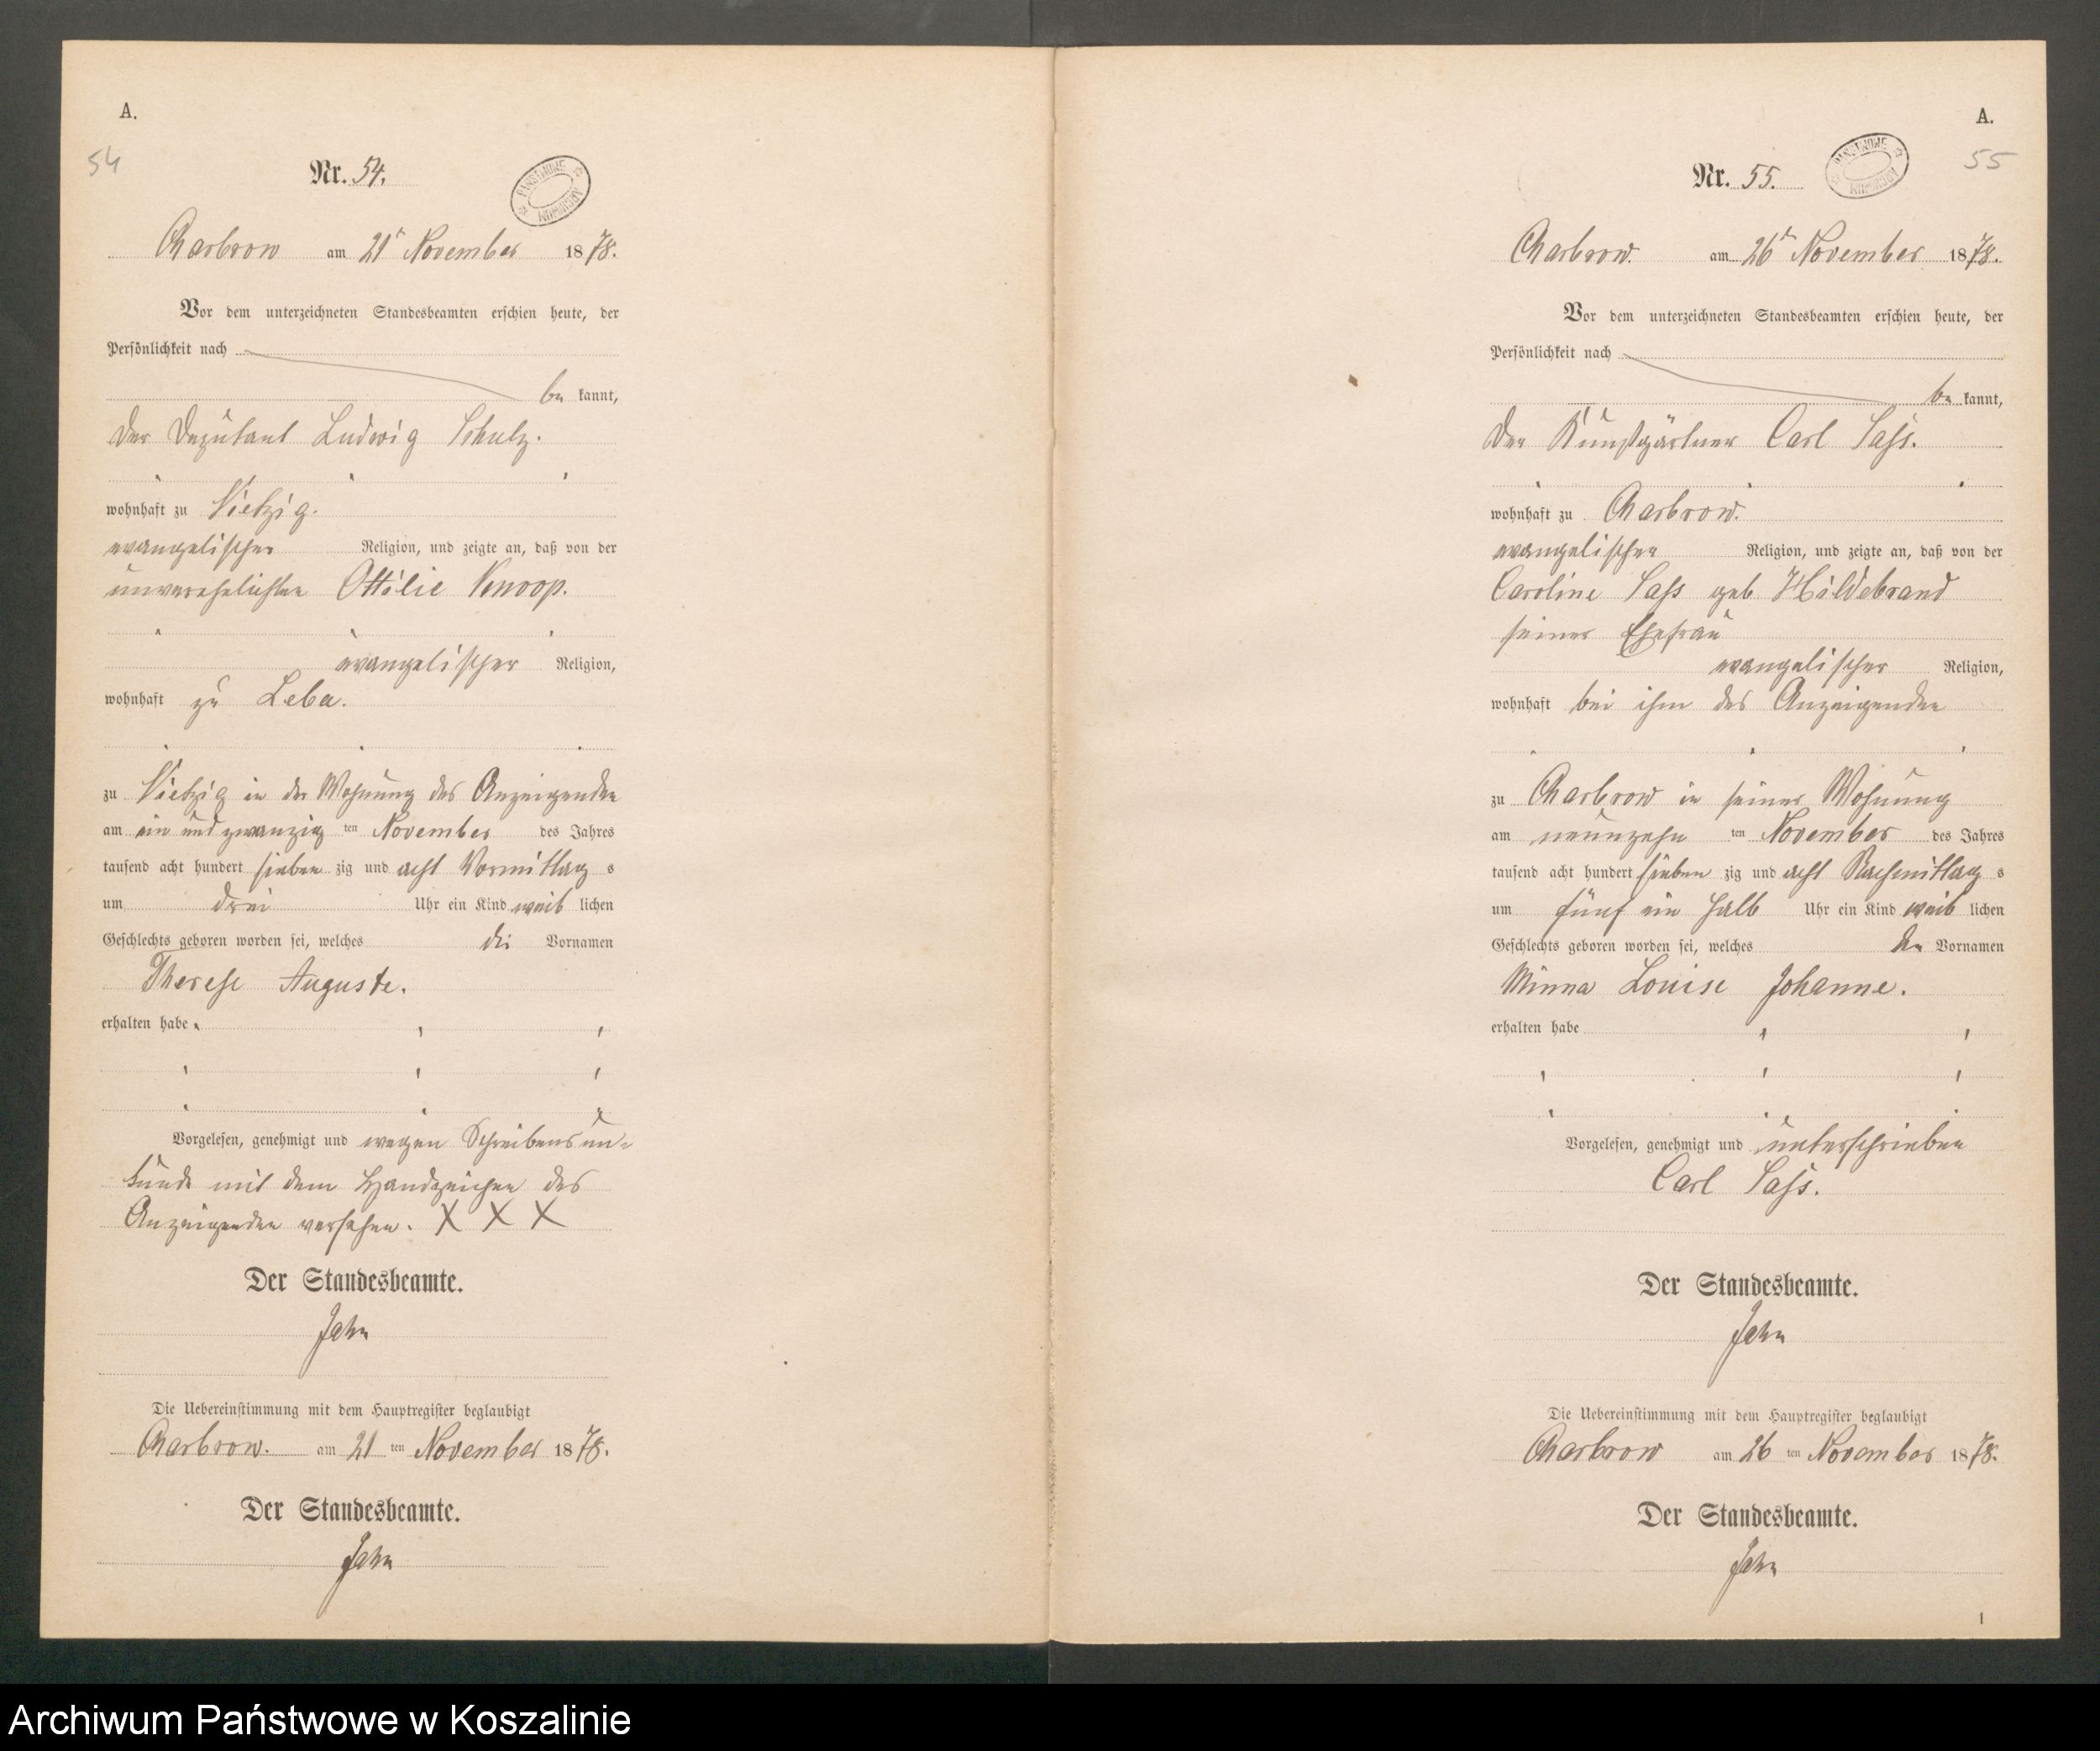 A.
54
Nr. 54.
Charbrow am 21t November 1878.
Vor dem unterzeichneten Standesbeamten erschien heute, der
Persönlichkeit nach
be kannt,
der Deputant Ludwig Schulz.
wohnhaft zu Vietzig.
evangelischer Religion, und zeigte an, daß von der
unverehelichten Ottilie Knoop.
evangelischer Religion,
wohnhaft zu Leba.
zu Vietzig in der Wohnung des Anzeigenden
am ein und zwanzig ten November des Jahres
tausend acht hundert sieben zig und acht Vormittag s
um drei Uhr ein Kind weib lichen
Geschlechts geboren worden sei, welches die Vornamen
Therese Auguste.
erhalten habe
Vorgelesen, genehmigt und wegen Schreibensun-
kunde mit dem Handzeichen des
Anzeigenden versehen. X X X
Der Standesbeamte.
Jahn
Die Uebereinstimmung mit dem Hauptregister beglaubigt
Charbrow. am 21 ten November 1878.
Der Standesbeamte.
Jahn
A.
55
Nr. 55.
PAŃSTWOWE ARCHIWUM
Charbrow. am 26t November 1878.
Vor dem unterzeichneten Standesbeamten erschien heute, der
Persönlichkeit nach
be kannt,
der Kunstgärtner Carl Sass.
wohnhaft zu Charbrow.
evangelischer Religion, und zeigte an, daß von der
Caroline Sass geb Hildebrand
seiner Ehefrau
evangelischer Religion,
wohnhaft bei ihm des Anzeigenden
zu Charbrow in seiner Wohnung
am neunzehn ten November des Jahres
tausend acht hundert sieben zig und acht Nachmittag s
um fünf ein halb Uhr ein Kind weib lichen
Geschlechts geboren worden sei, welches Vornamen
Minna Louise Johanne.
erhalten habe
Vorgelesen, genehmigt und unterschrieben
Carl Sass.
Der Standesbeamte.
Jahn
Die Uebereinstimmung mit dem Hauptregister beglaubigt
Charbrow am 26 ten November 1878.
Der Standesbeamte.
Jahn
1
Archiwum Państwowe w Koszalinie